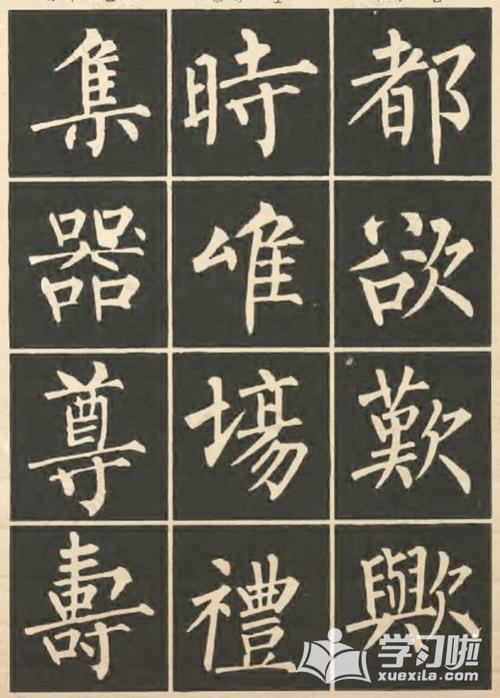 都欲歎歟
時唯場禮
集器尊壽
学习啦
xuexila.com